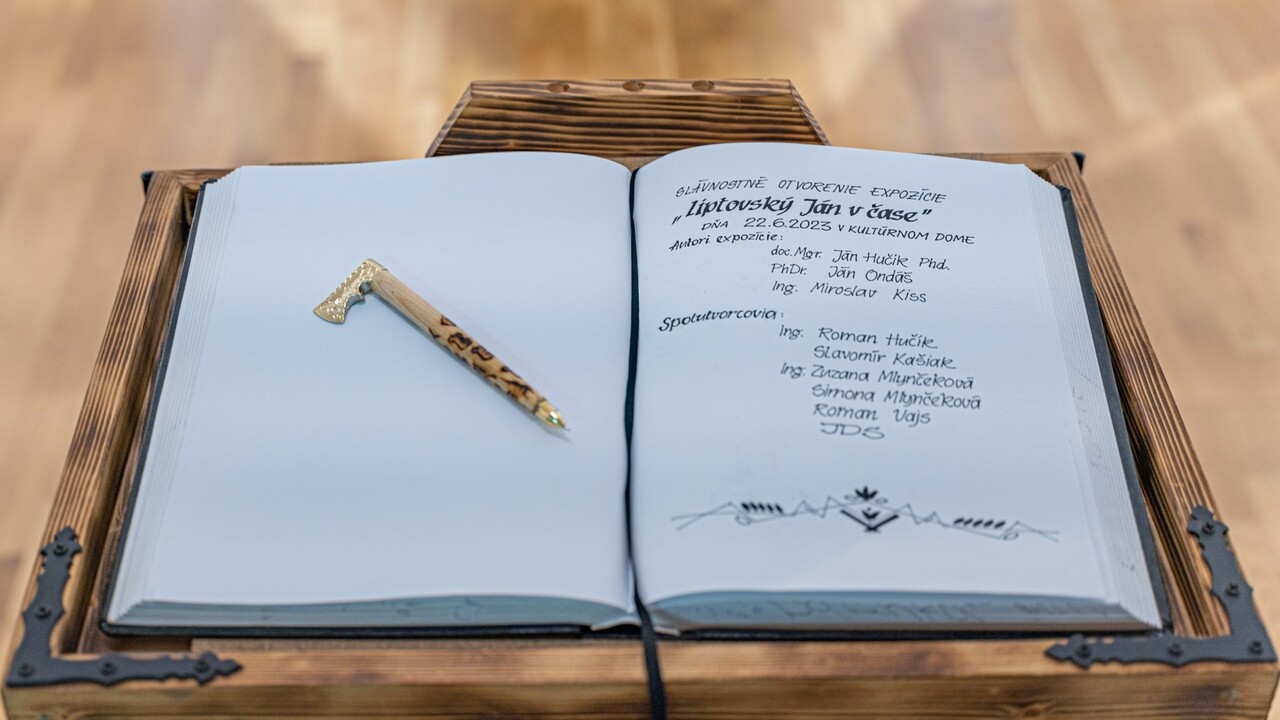 SLÁVNOSTNÉ OTVORENIE EXPOZÍCIE
„Liptovský Ján v čase"
DŇA 22.6.2023 V KULTÚRNOM DOME
Autori expozície:
doc. Mgr. Ján Hučík Phd.
PhDr. Ján Ondáš
Ing. Miroslav Kiss
Spolutvorcovia:
Ing. Roman Hučík
Slavomír Kašiak
Ing. Zuzana Mlynčeková
Simona Mlynčeková
Roman Vajs
JDS